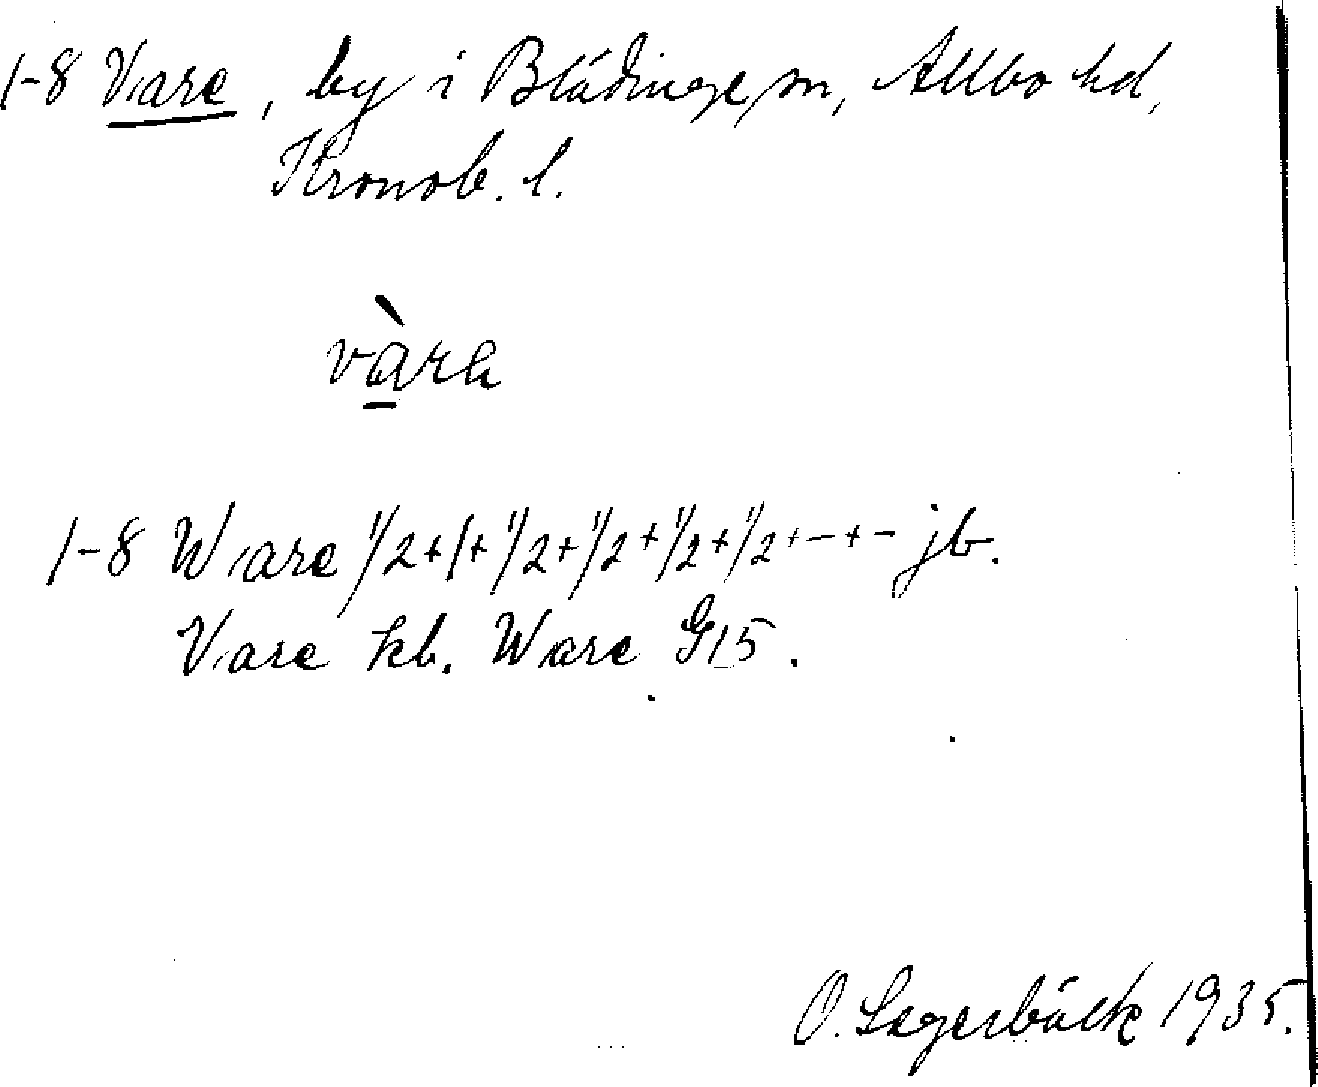 1-8 Vare, by i Blädinge sn, Allbo hd,
Kronob. l.
vàra
1-8 Ware 1/2+1+1/2+1/2+1/2+1/2+-+- jb.
Vare kb. Ware G15.
O. Lagerbäck 1935.